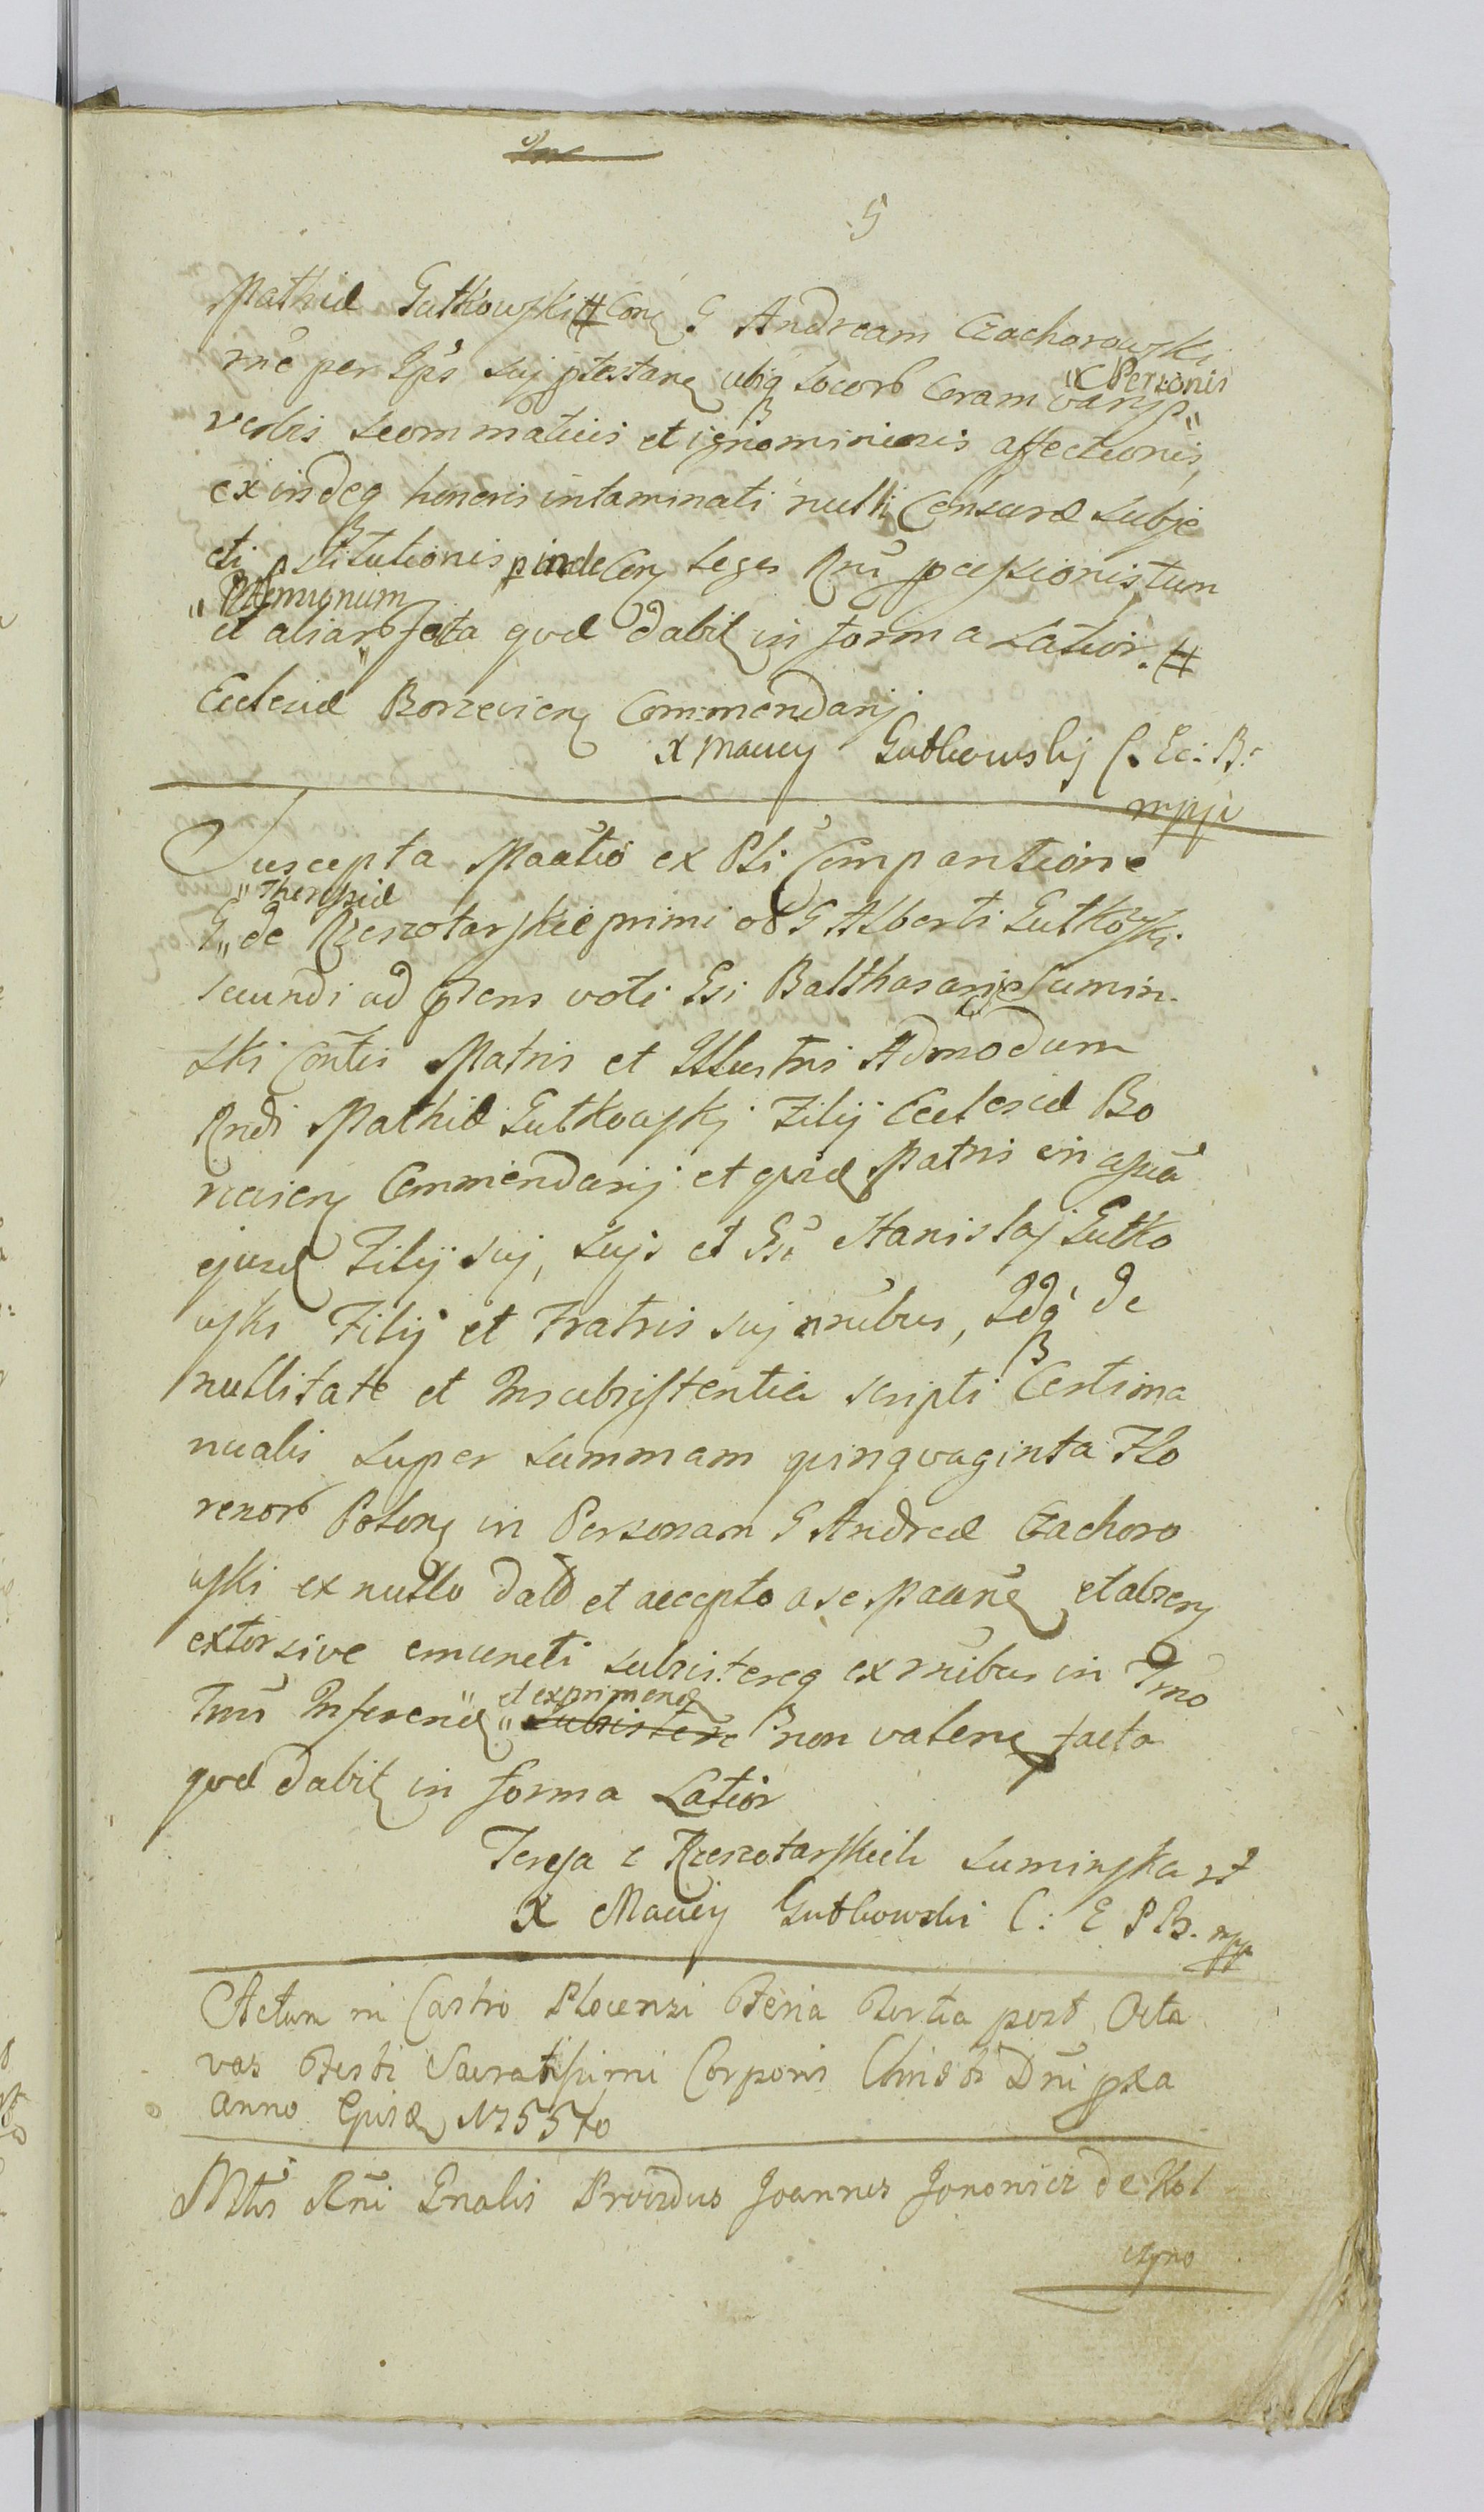 5
Mathiæ Gutkowski # Con G Andream Czachorowski
rne per Ips suj ptestane ubiq locorb Coram varys "Personis"
verbis scommaticis et ignominiosis affectionis,
exindeq honoris intaminati nulli Censuræ subje
cti pstitutionis pinde Con Leges Rni pcessionis tum
"Ptemionum"
et aliarb facta quæ dabit in forma Latior. #
Ecclesiæ Borzevien Commendarij
X Maciey Gutkowskij C. Ec: B:
mppi
Suscepta Maatio ex Pli Comparitione
"Theresiæ"
G "de Rzeszotarskie primi olG Alberti Gutkoski
secundi ad pns voti Gsi Balthasaris Sumin
ski Contis Matris et Illustris Admodum
Rndi Mathiæ Gutkowskj Filij Ecclesiæ Bo
rzevien Commendarij et qvid Matris in assia
ejusd Filij suj, sujs et Gsi Stanislaj Gutko
wski Filij et Fratris suj nnibus, Idq de
nullitate et Insubsistentia scripti Certi ma
nualis super summam qvinqvaginta Flo
renorb Polon in Personam G Andreæ Czachoro
wski ex nullo dato et accepto a se et absen
extorsive emuncti subsistereq ex rnibus in Tmo
Tmi Inferend "et exprimend" subsistere non valen facta
qvæ dabit in forma Latior
Teresa z Rzeszotarskich Suminska
X Maciey Gutkowski C: E P B. mpp
Actum in Castro Plocensi Feria Tertia post Octa
vas Festi Sacratissimi Corporis Christi Dni pxa
Anno Ejusd 1755to
Mtus Rni Gnalis Providus Joannes de Kol